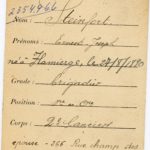 2354766
Nom : Steinfort
Prénoms : Ernest Joseph
né à Flamierge, le 27/8/80
Grade : Brigadier
Position :
Corps : 2e Lanciers
épouse - 266 Rue champ des